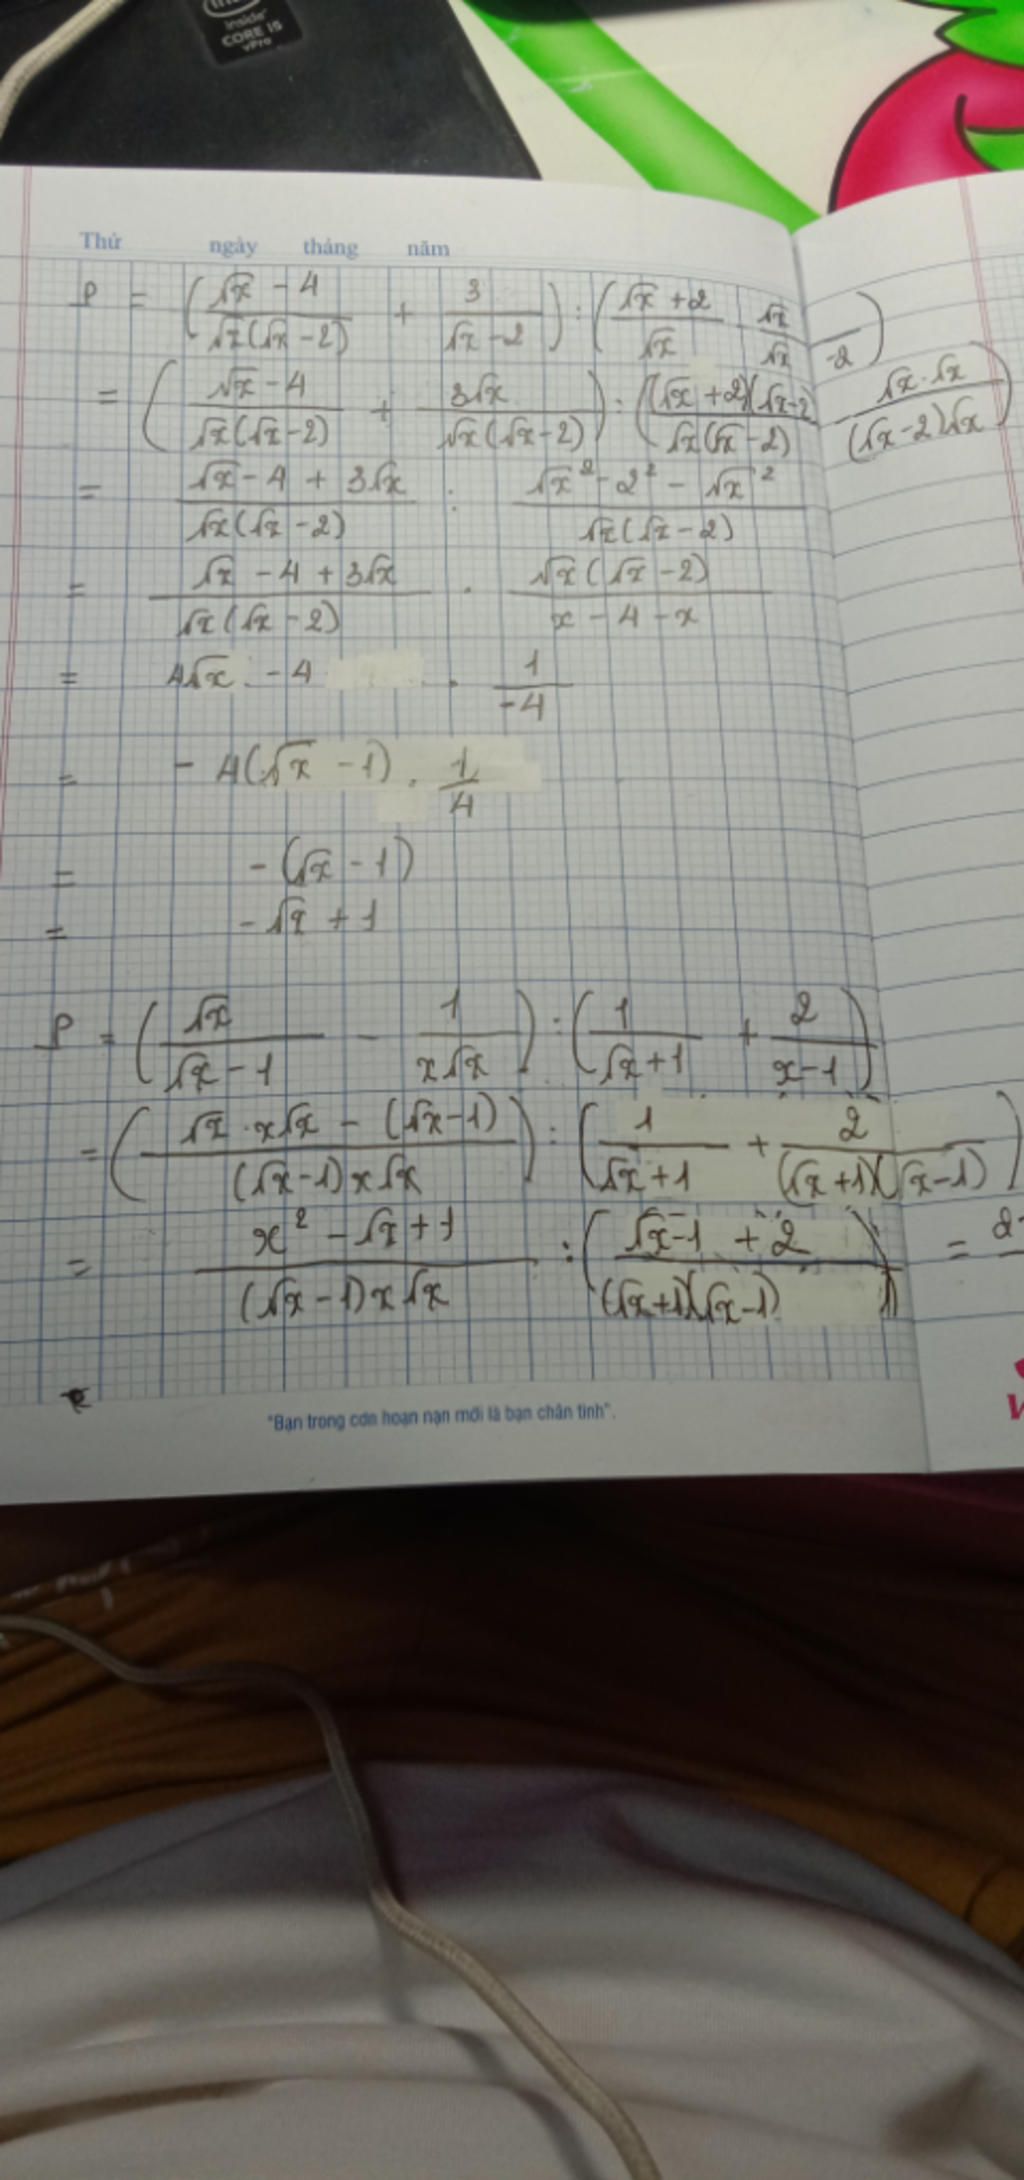 inside
CORE i5
vPro
Thứ ngày tháng năm
P = ( (√x - 4)/(√x(√x - 2)) + 3/(√x - 2) ) : ( (√x + 2)/√x - √x/(√x - 2) )
= ( (√x - 4)/(√x(√x - 2)) + 3√x/(√x(√x - 2)) ) : ( ((√x + 2)(√x - 2))/(√x(√x - 2)) - (√x · √x)/((√x - 2)√x) )
= (√x - 4 + 3√x)/(√x(√x - 2)) : (√x² - 2² - √x²)/(√x(√x - 2))
= (√x - 4 + 3√x)/(√x(√x - 2)) · (√x(√x - 2))/(x - 4 - x)
= 4√x - 4 · 1/-4
= - 4(√x - 1) · 1/4
= - (√x - 1)
= - √x + 1
P = ( √x/(√x - 1) - 1/(x√x) ) : ( 1/(√x + 1) + 2/(x - 1) )
= ( (√x · x√x - (√x - 1))/((√x - 1)x√x) ) : ( 1/(√x + 1) + 2/((√x + 1)(√x - 1)) )
= (x² - √x + 1)/((√x - 1)x√x) : ( (√x - 1 + 2)/((√x + 1)(√x - 1)) ) =
"Bạn trong cơn hoạn nạn mới là bạn chân tình".